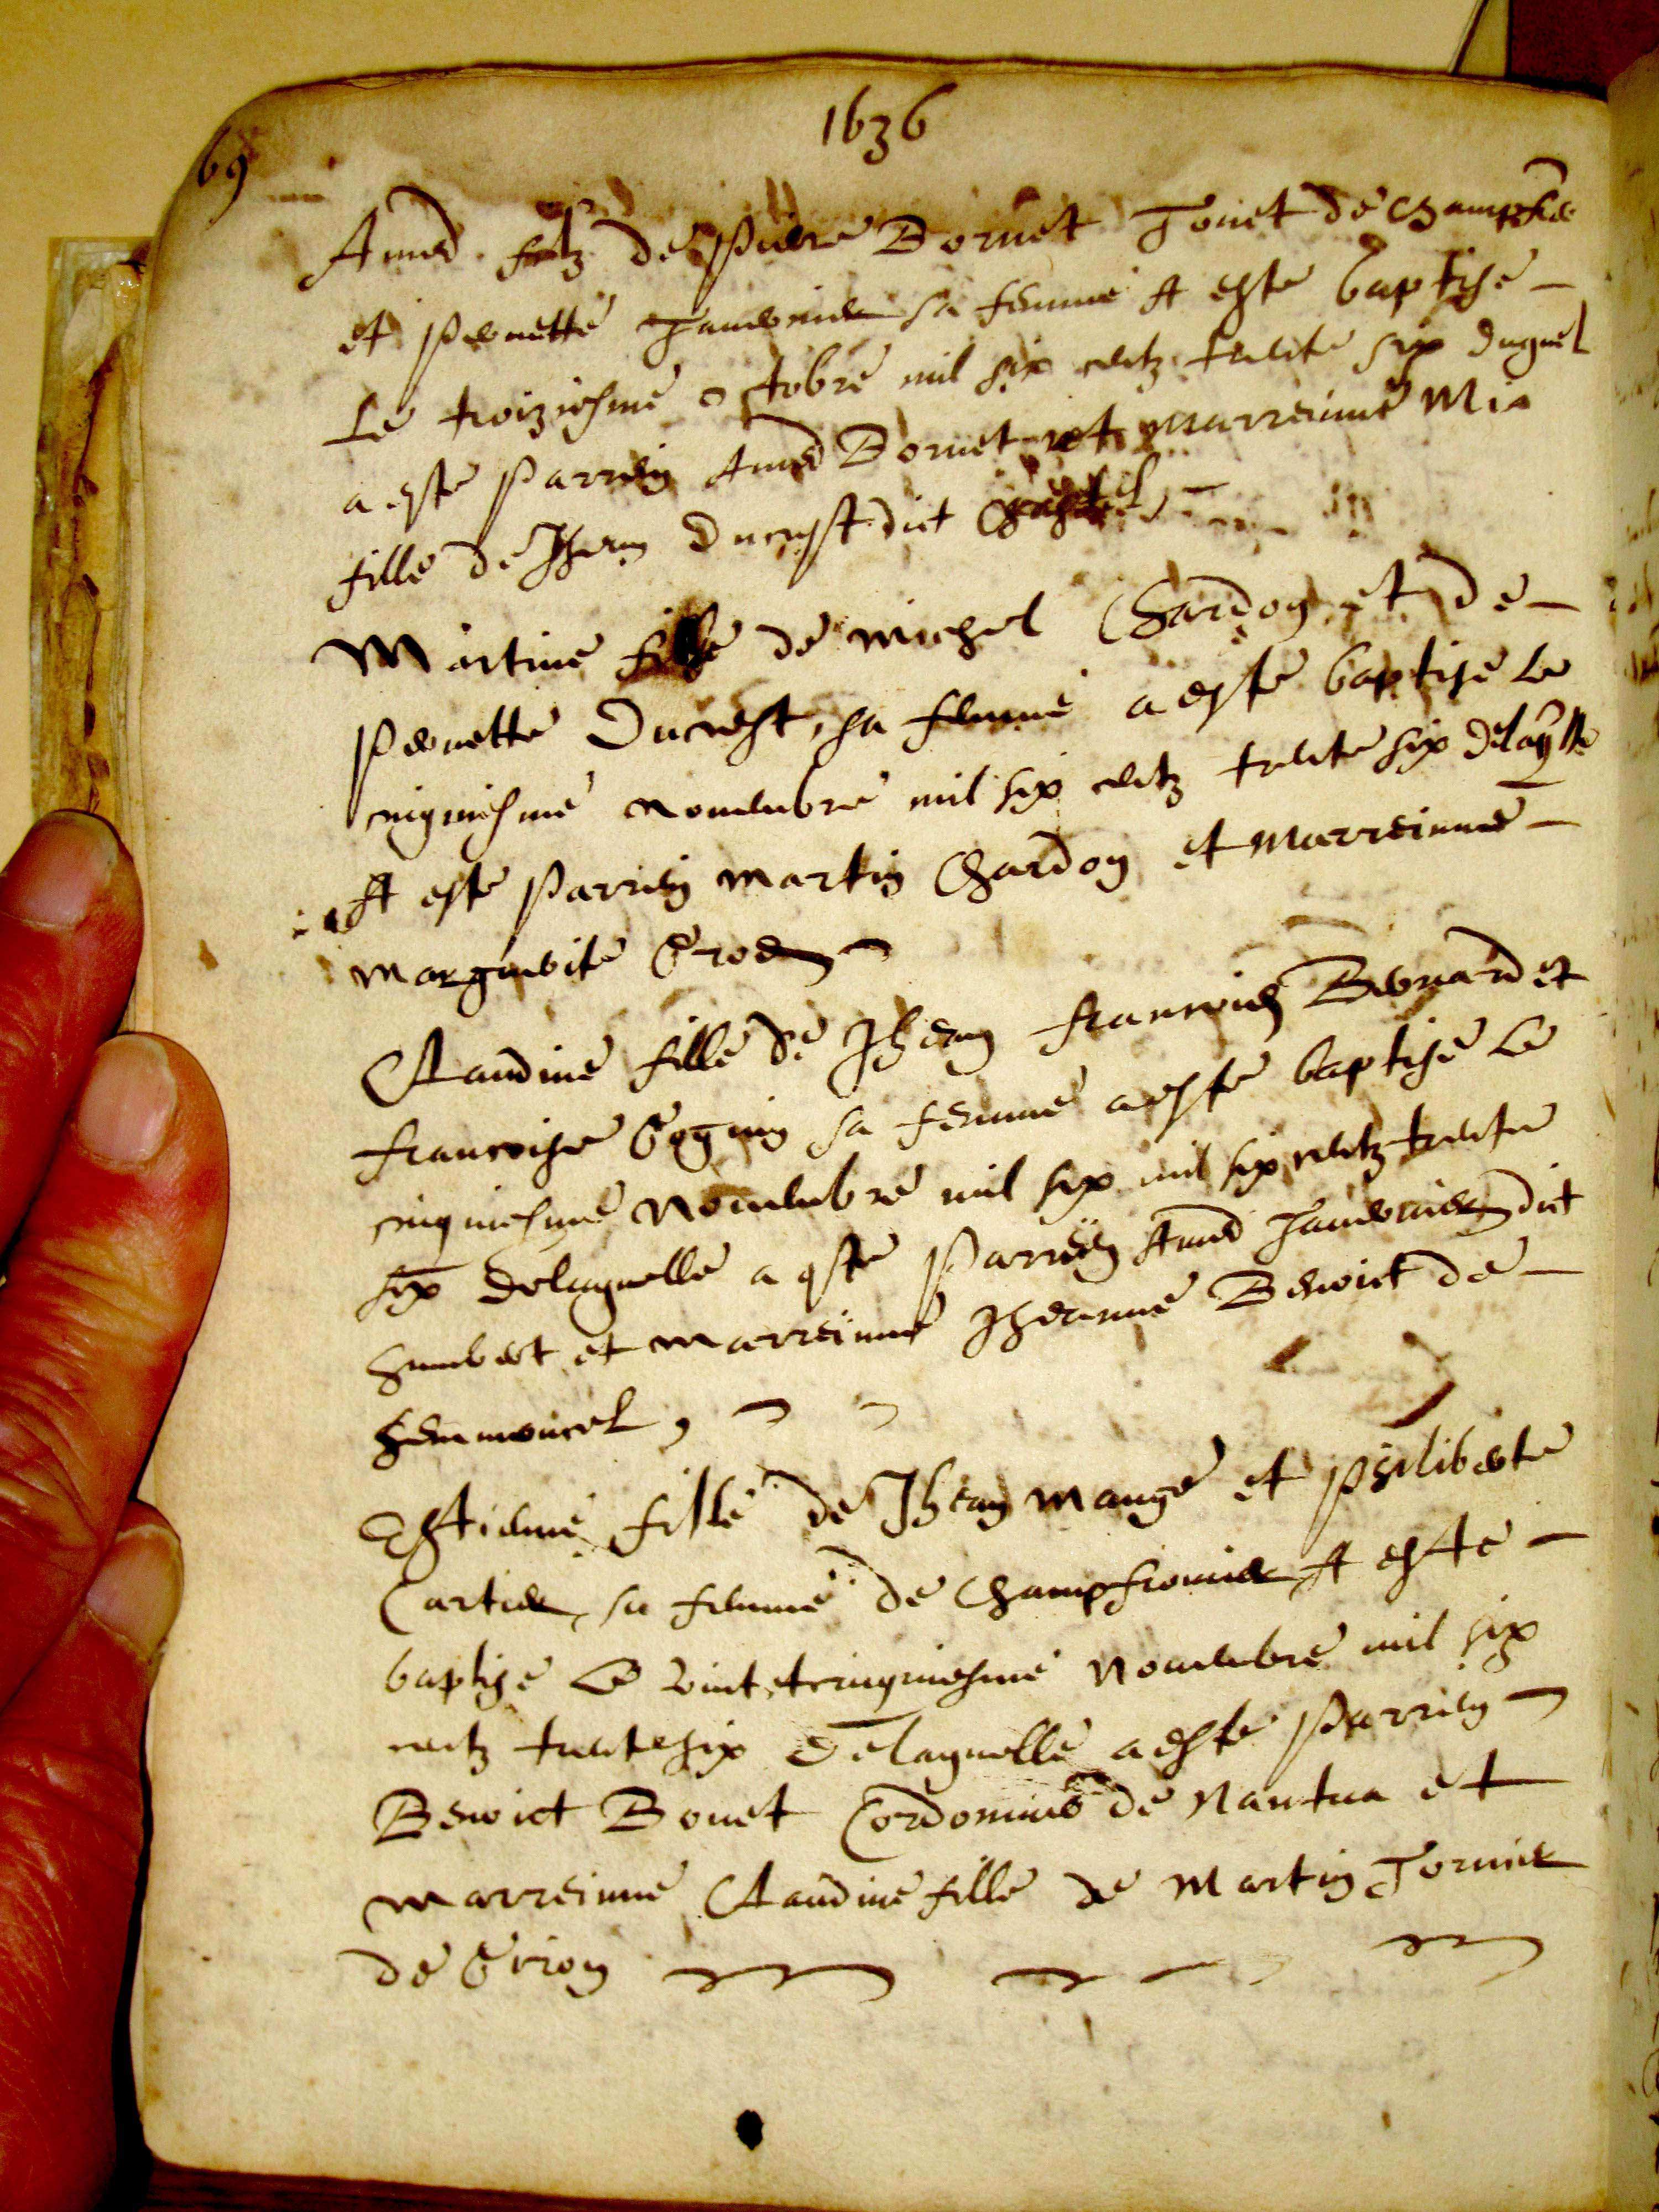 1636
69
Amed filz de Pierre Bornet Tonet de Champfro
et Pernette Tavernier sa femme A este baptise
Le troiziesme octobre mil six centz trente six duquel
a este Parrein Amed Bornet et Marreinne Mia
fille de Jhean Ducrest dict
Martine fille de Michel Chardon et de
Pernette Ducrest sa femme a este baptise le
cinquiesme novembre mil six centz trente six delaqlle
A este Parrein Martin Chardon et Marreinne
Marguerite
Claudine fille de Jhean Francois Bernard et
Francoise sa femme a este baptise le
cinquiesme Novembre mil six mil six centz trente
six delaquelle a este Parrein Amed Tavernier dict
humbert et Marreinne Jheanne Benoict de

Estienne fille de Jhean Mange et Philiberte
Cartier sa femme de Champfromier A este
baptise le vint et cinquiesme Novembre mil six
centz trente six Delaquelle a este Parrein
Benoict Bonet Cordonnie de Nantua et
Marreinne Claudine fille de Martin Tornier
de Giron